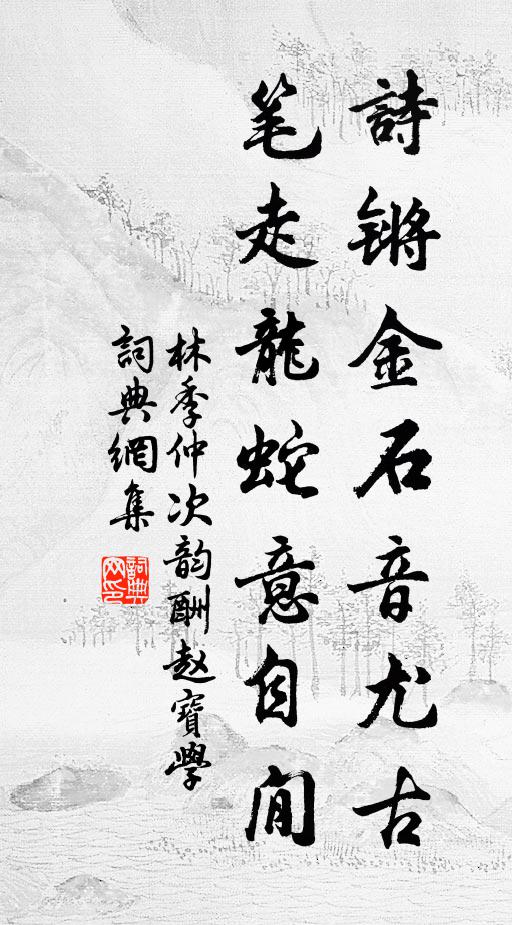 詩锵金石音尤古
笔走龍蛇意自閒
林季仲次韵酬赵寶學
詞典網集
詞典网印